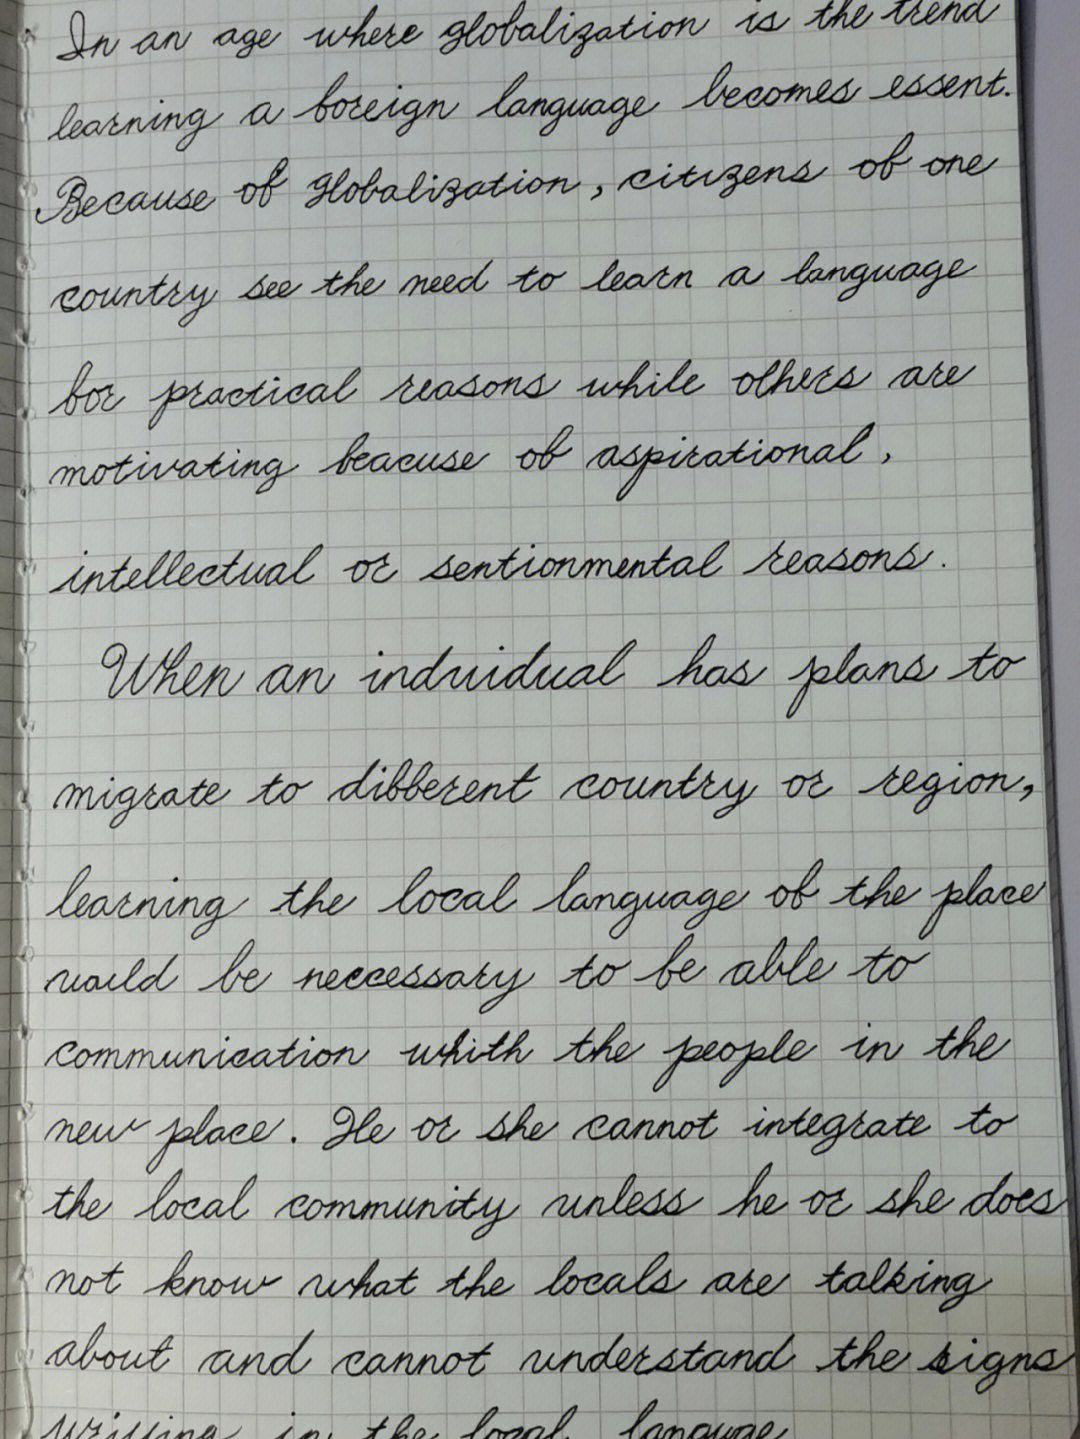 In an age where globalization is the trend
learning a foreign language becomes essent.
Because of globalization, citizens of one
country see the need to learn a language
for practical reasons while others are
motivating beacuse of aspirational,
intellectual or sentionmental reasons.
When an indruidual has plans to
migrate to different country or region,
learning the local language of the place
would be neccessary to be able to
communication whith the people in the
new place. He or she cannot integrate to
the local community unless he or she does
not know what the locals are talking
about and cannot understand the signs
in the local language